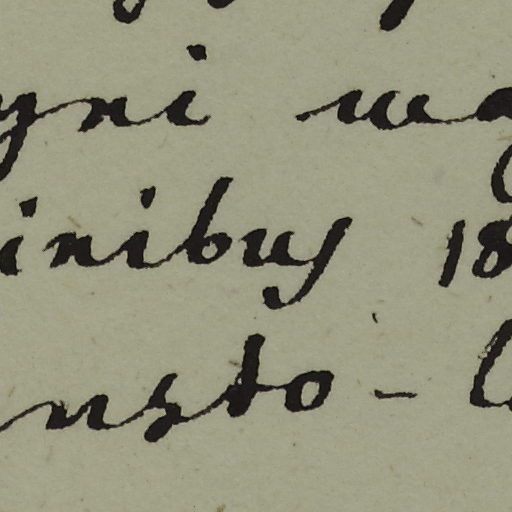 yni ma
inibus 18
nsto -